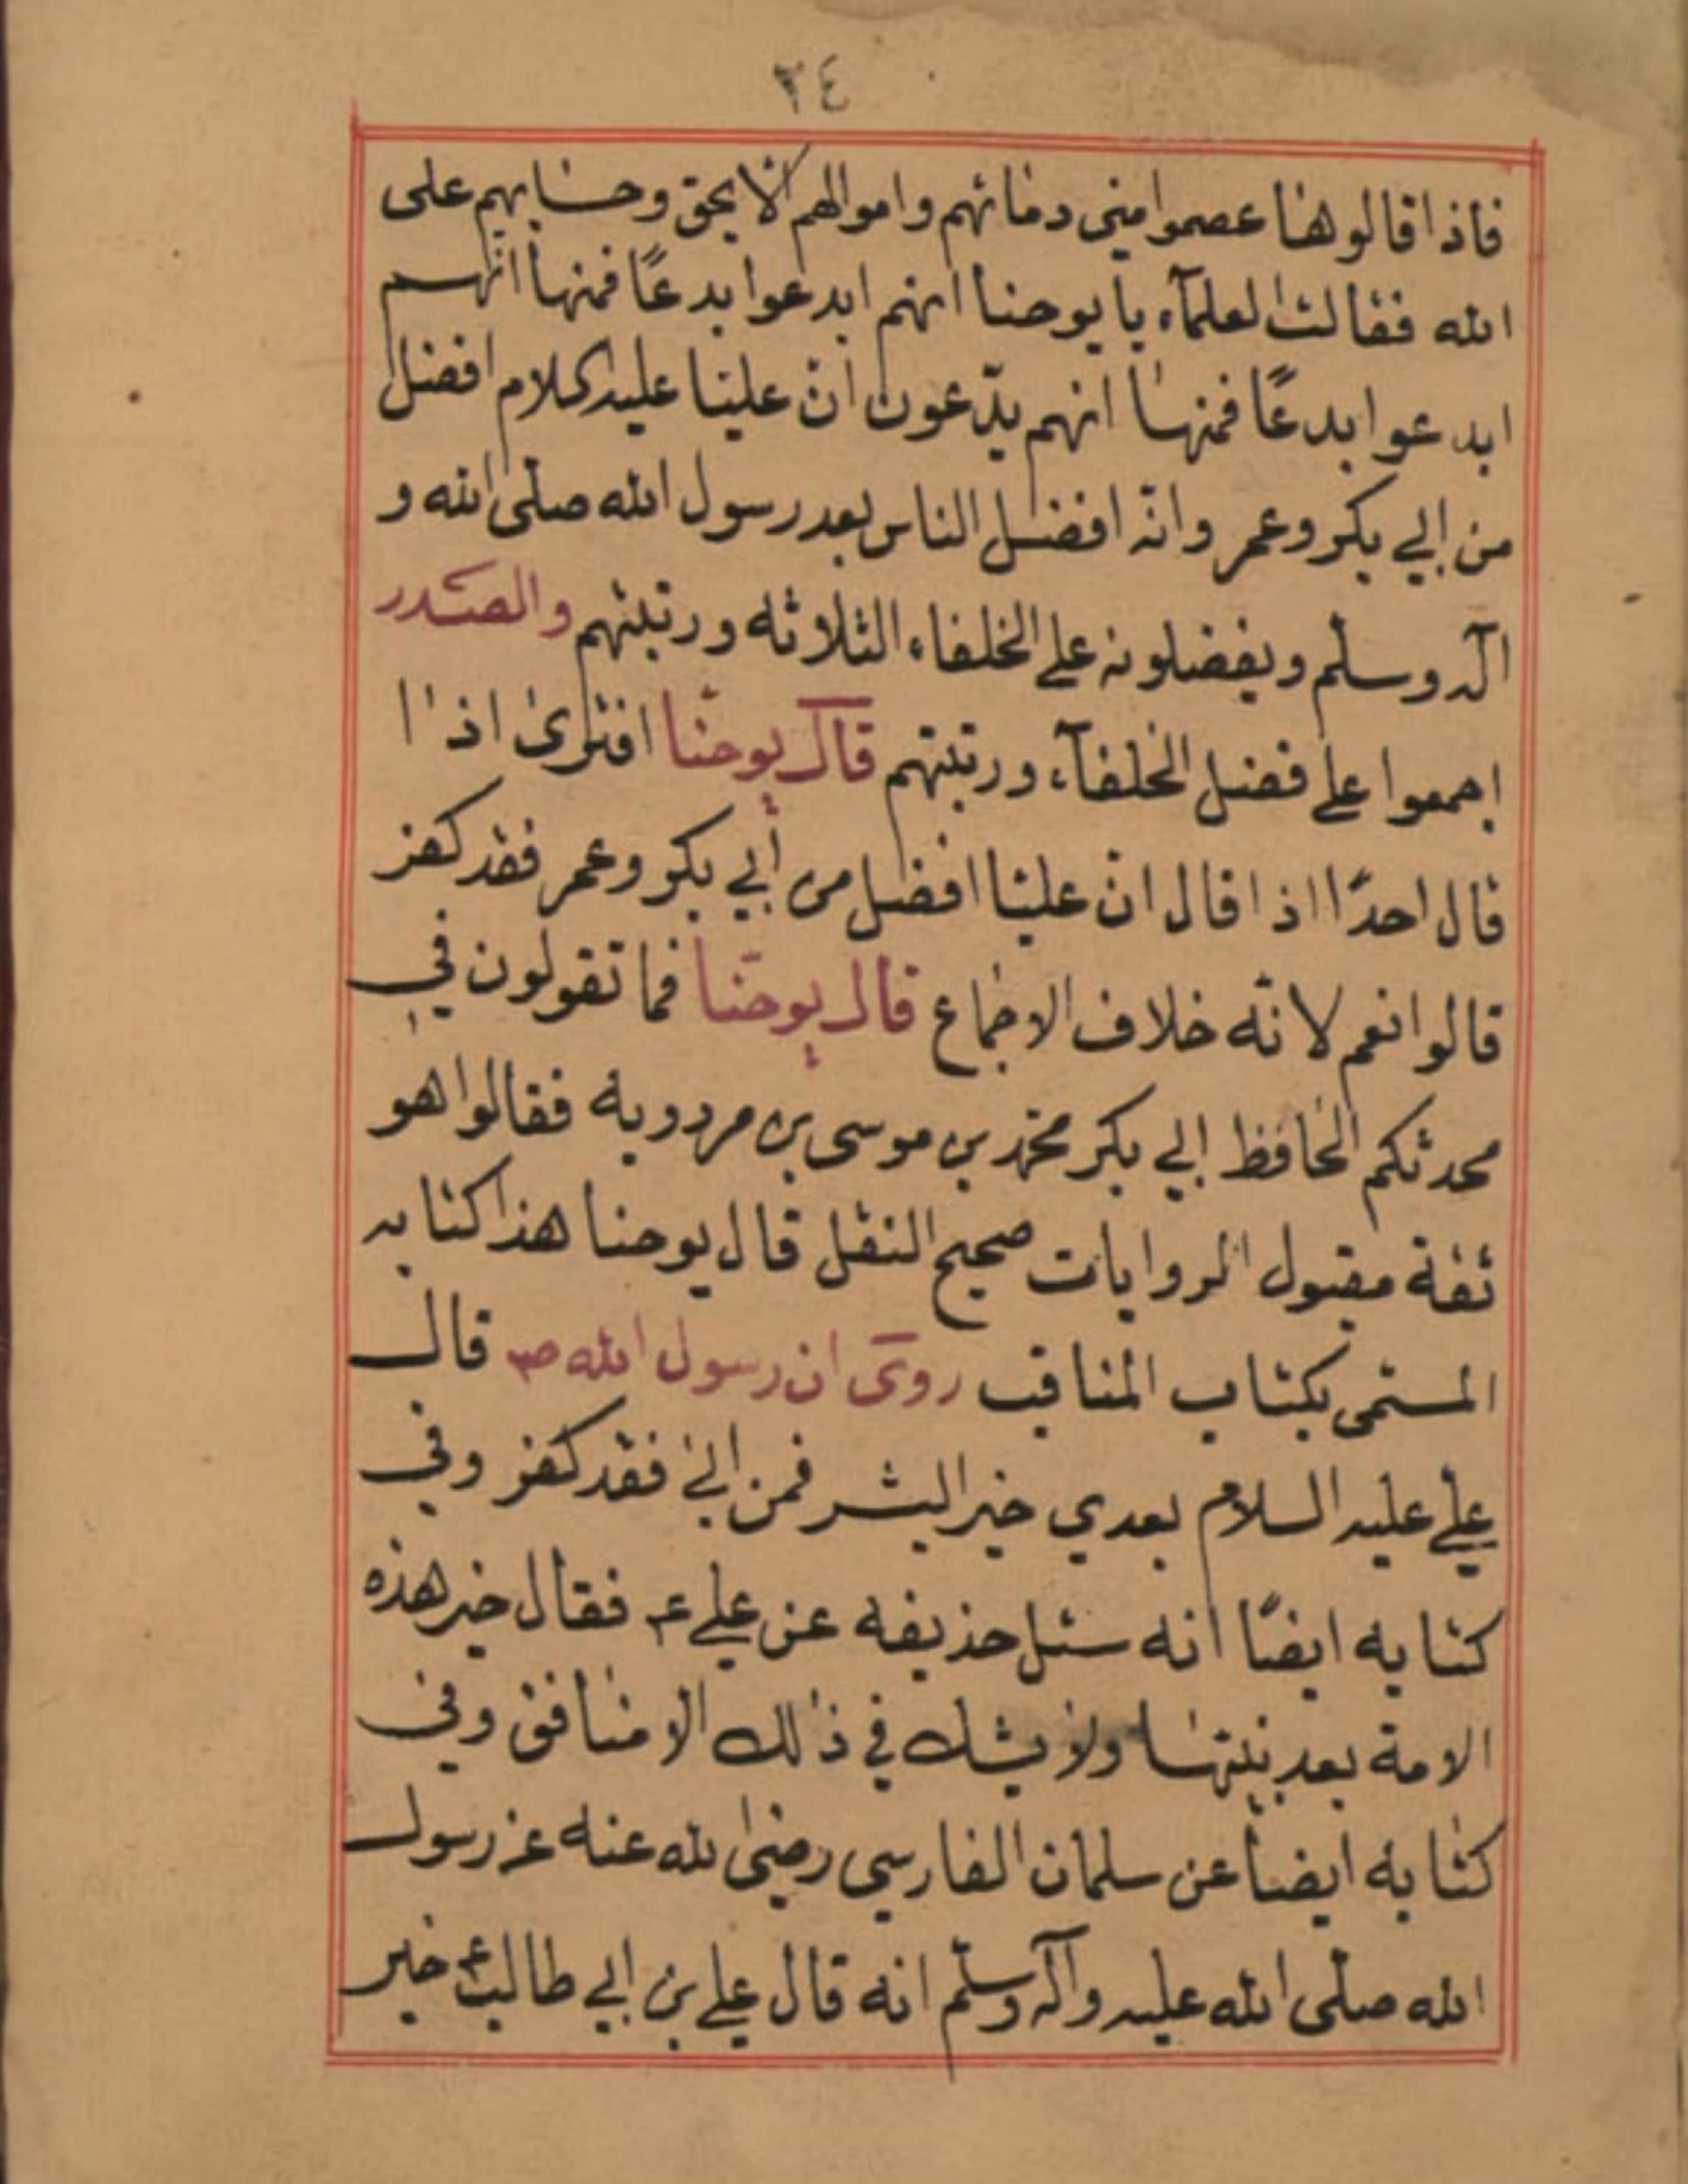 ٢٤
فاذا قالوها عصموا منى دمائهم واموالهم الا بحق وحسابهم على
الله فقالت العلمآء يا يوحنا انهم ابدعوا بدعًا فمنها انهم
ابدعوا بدعًا فمنها انهم يدّعون انّ عليا عليه السلام افضل
من ابي بكر وعمر وانّه افضل الناس بعد رسول الله صلى الله و
آله وسلم ويفضلونه على الخلفاء الثلاثه ورتبتهم والصّدر
اجمعوا على فضل الخلفآء ورتبتهم قال يوحنّا افترى اذا
قال احدًا اذا قال انّ عليا افضل من ابي بكر وعمر فقد كفر
قالوا نعم لانّه خلاف الاجماع قال يوحنّا فما تقولون في
محدثكم الحافظ ابي بكر محمد بن موسى بن مردويه فقالوا هو
ثقة مقبول الروايات صحيح النقل قال يوحنا هذا كتابه
المسمّى بكتاب المناقب روى ان رسول الله ص قال
علي عليه السلام بعدي خير البشر فمن ابى فقد كفر وفي
كتابه ايضًا انه سئل حذيفه عن علي ع فقال خير هذه
الامة بعد نبيّها ولا يشك في ذالك الا منافق وفي
كتابه ايضا عن سلمان الفارسي رضى الله عنه عن رسول
الله صلّى الله عليه وآله وسلّم انه قال علي بن ابي طالب ع خير